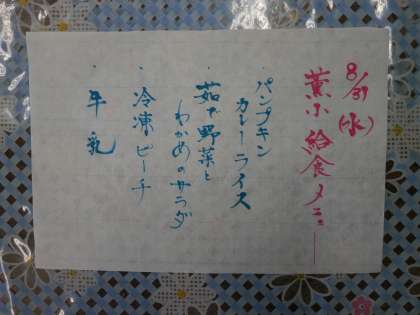 8/31(水)
薫小 給食メニュー
・パンプキン
カレーライス
・茹で野菜と
わかめのサラダ
・冷凍ピーチ
・牛乳